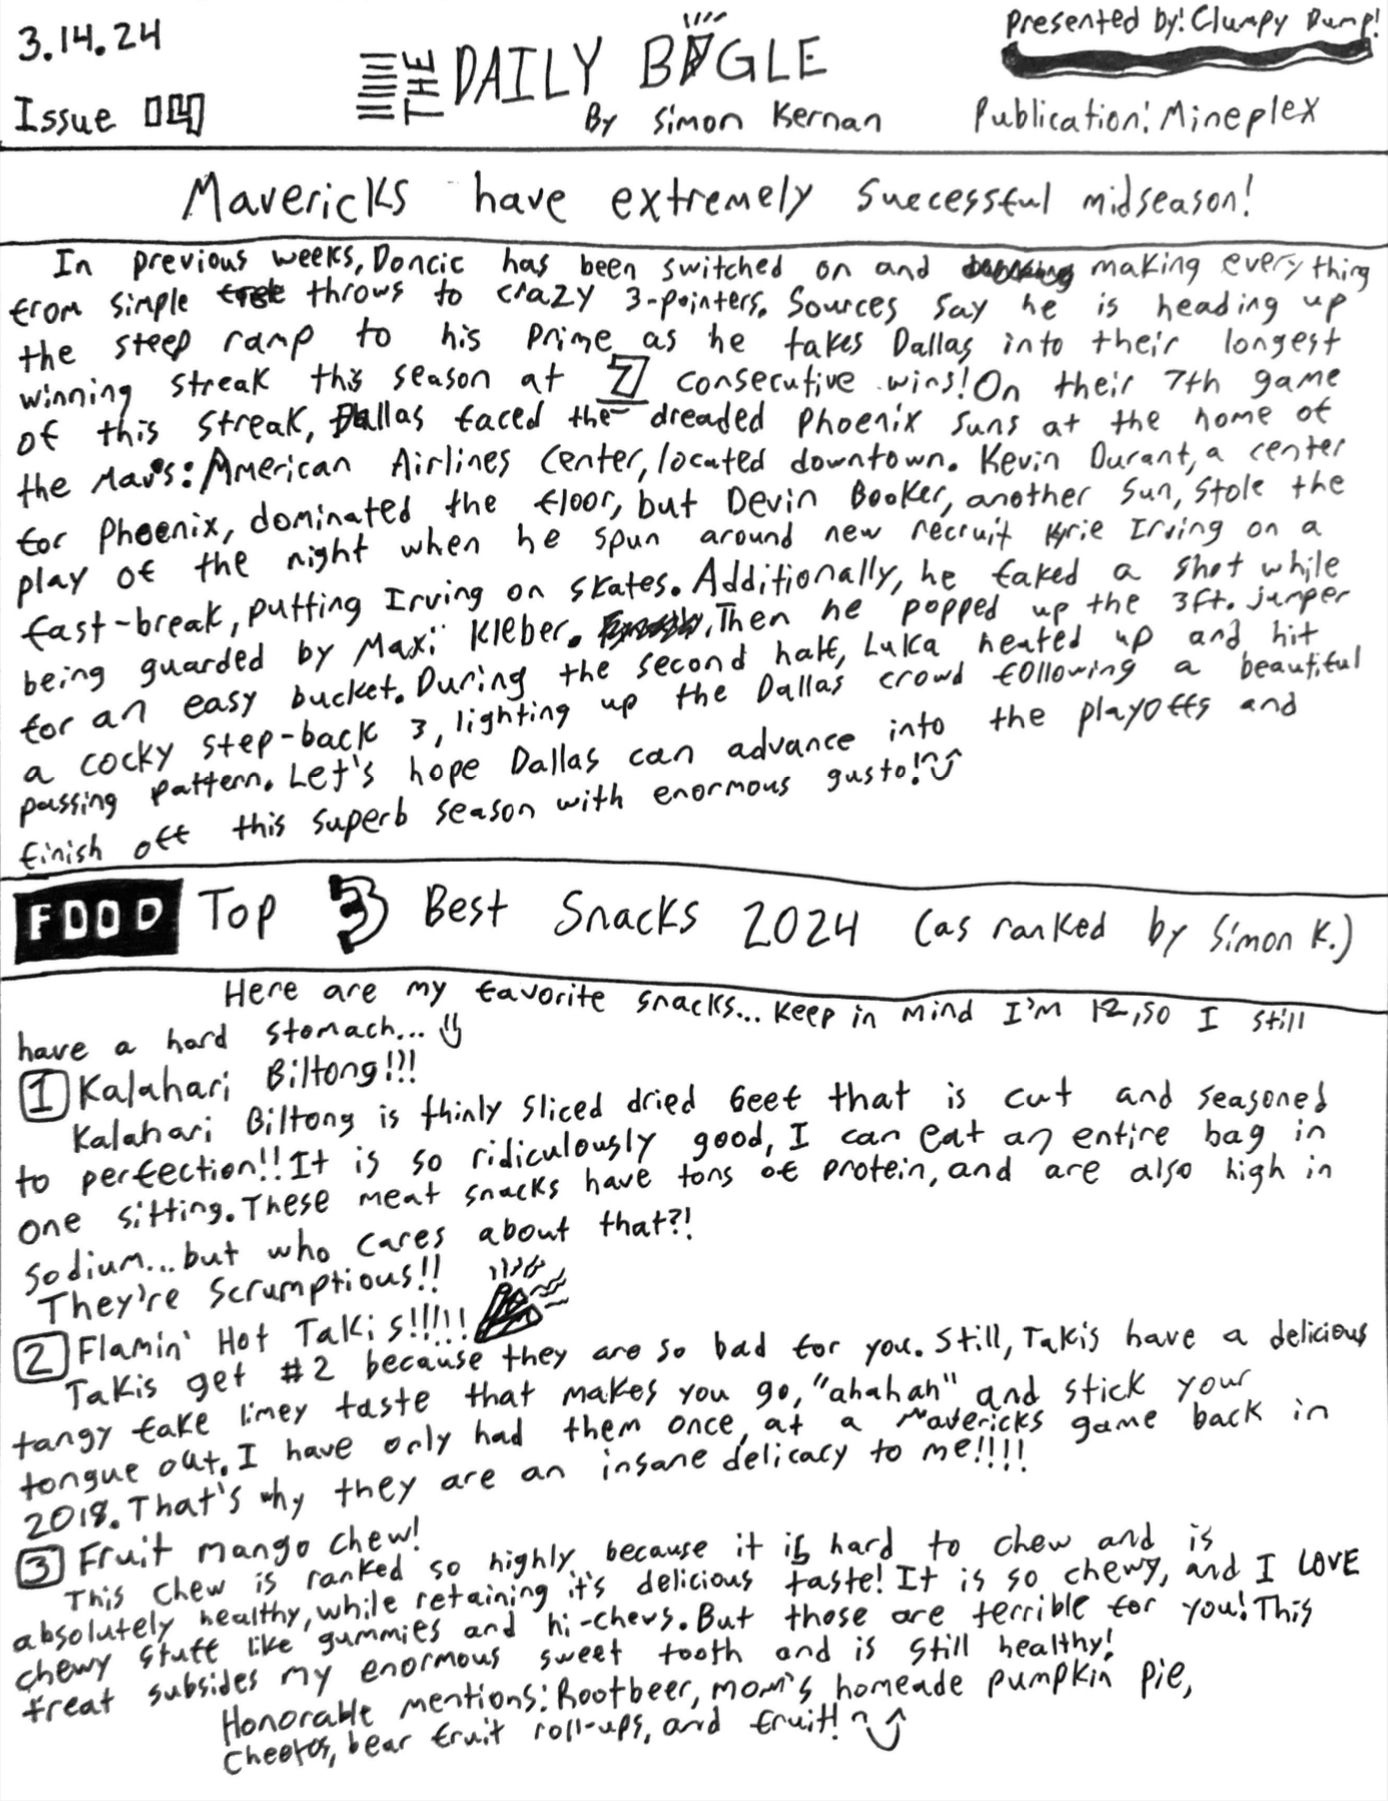 3.14.24
Issue 04
THE DAILY BAGLE
By Simon Kernan
Presented by: Clumpy Dump!
Publication: Mineplex
Mavericks have extremely successful midseason!
In previous weeks, Doncic has been switched on and making everything
from simple free throws to crazy 3-pointers. Sources say he is heading up
the steep ramp to his prime as he takes Dallas into their longest
winning streak this season at 7 consecutive wins! On their 7th game
of this streak, Dallas faced the dreaded Phoenix Suns at the home of
the Mavs: American Airlines Center, located downtown. Kevin Durant, a center
for Phoenix, dominated the floor, but Devin Booker, another Sun, stole the
play of the night when he spun around new recruit Kyrie Irving on a
fast-break, putting Irving on skates. Additionally, he faked a shot while
being guarded by Maxi Kleber. Then he popped up the 3ft. jumper
for an easy bucket. During the second half, Luka heated up and hit
a cocky step-back 3, lighting up the Dallas crowd following a beautiful
passing pattern. Let's hope Dallas can advance into the playoffs and
finish off this superb season with enormous gusto!
FOOD Top 3 Best Snacks 2024 (as ranked by Simon K.)
Here are my favorite snacks... Keep in mind I'm 12, so I still
have a hard stomach...
1 Kalahari Biltong!!!
Kalahari Biltong is thinly sliced dried beef that is cut and seasoned
to perfection!! It is so ridiculously good, I can eat an entire bag in
one sitting. These meat snacks have tons of protein, and are also high in
sodium... but who cares about that?!
They're scrumptious!!
2 Flamin' Hot Takis!!!!!
Takis get #2 because they are so bad for you. Still, Takis have a delicious
tangy fake limey taste that makes you go, "ahahah" and stick your
tongue out. I have only had them once, at a Mavericks game back in
2018. That's why they are an insane delicacy to me!!!!
3 Fruit mango chew!
This chew is ranked so highly because it is hard to chew and is
absolutely healthy, while retaining it's delicious taste! It is so chewy, and I LOVE
chewy stuff like gummies and hi-chews. But those are terrible for you! This
treat subsides my enormous sweet tooth and is still healthy!
Honorable mentions: Rootbeer, mom's homeade pumpkin pie,
Cheetos, bear fruit roll-ups, and fruit!